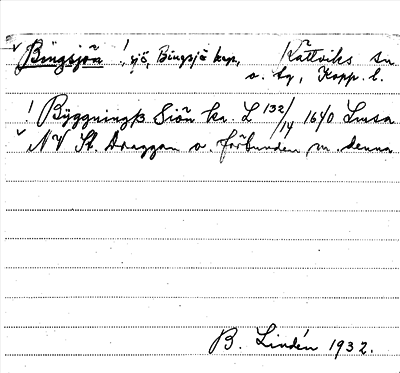 Bingsjön !, sjö, Bingsjö kap, Rättviks sn
o. tg, Kopp. l.
! Byggningsk Siön kr. L 132/14 1640 Lmsa
NV St. Draggan o. förbunden m. denna
B. Lindén 1932.